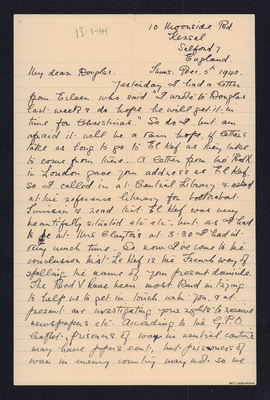 13-1-41
10 Moorside Rd.
Kersal
Salford 7
England
Thurs. Dec. 5th 1940.
My dear Douglas,
Yesterday I had a letter
from Eileen who said "I wrote to Douglas
last week & do hope he will get it in
time for Christmas." So do I, but am
afraid it will be a vain hope, if letters
take as long to go to El Kef as they take
to come from there. A letter from the Red X
in London gave your address as El Kef,
so I called in at Central Library & asked
at the reference library for books about
Tunisia & read that El Kef was very
beautifully situated etc etc. but as I had
to be at Mrs Clayton's at 3.30 I hadn't
very much time. So now I've come to the
conclusion that Le Kef is the French way of
spelling the name of your present domicile.
The Red X have been most kind in trying
to help us to get in touch with you & at
present are investigating your rights to receive
newspapers etc. According to the G.P.O.
leaflet, prisoners of war in neutral countries
may have papers sent, but prisoners of
war in enemy country may not. So we